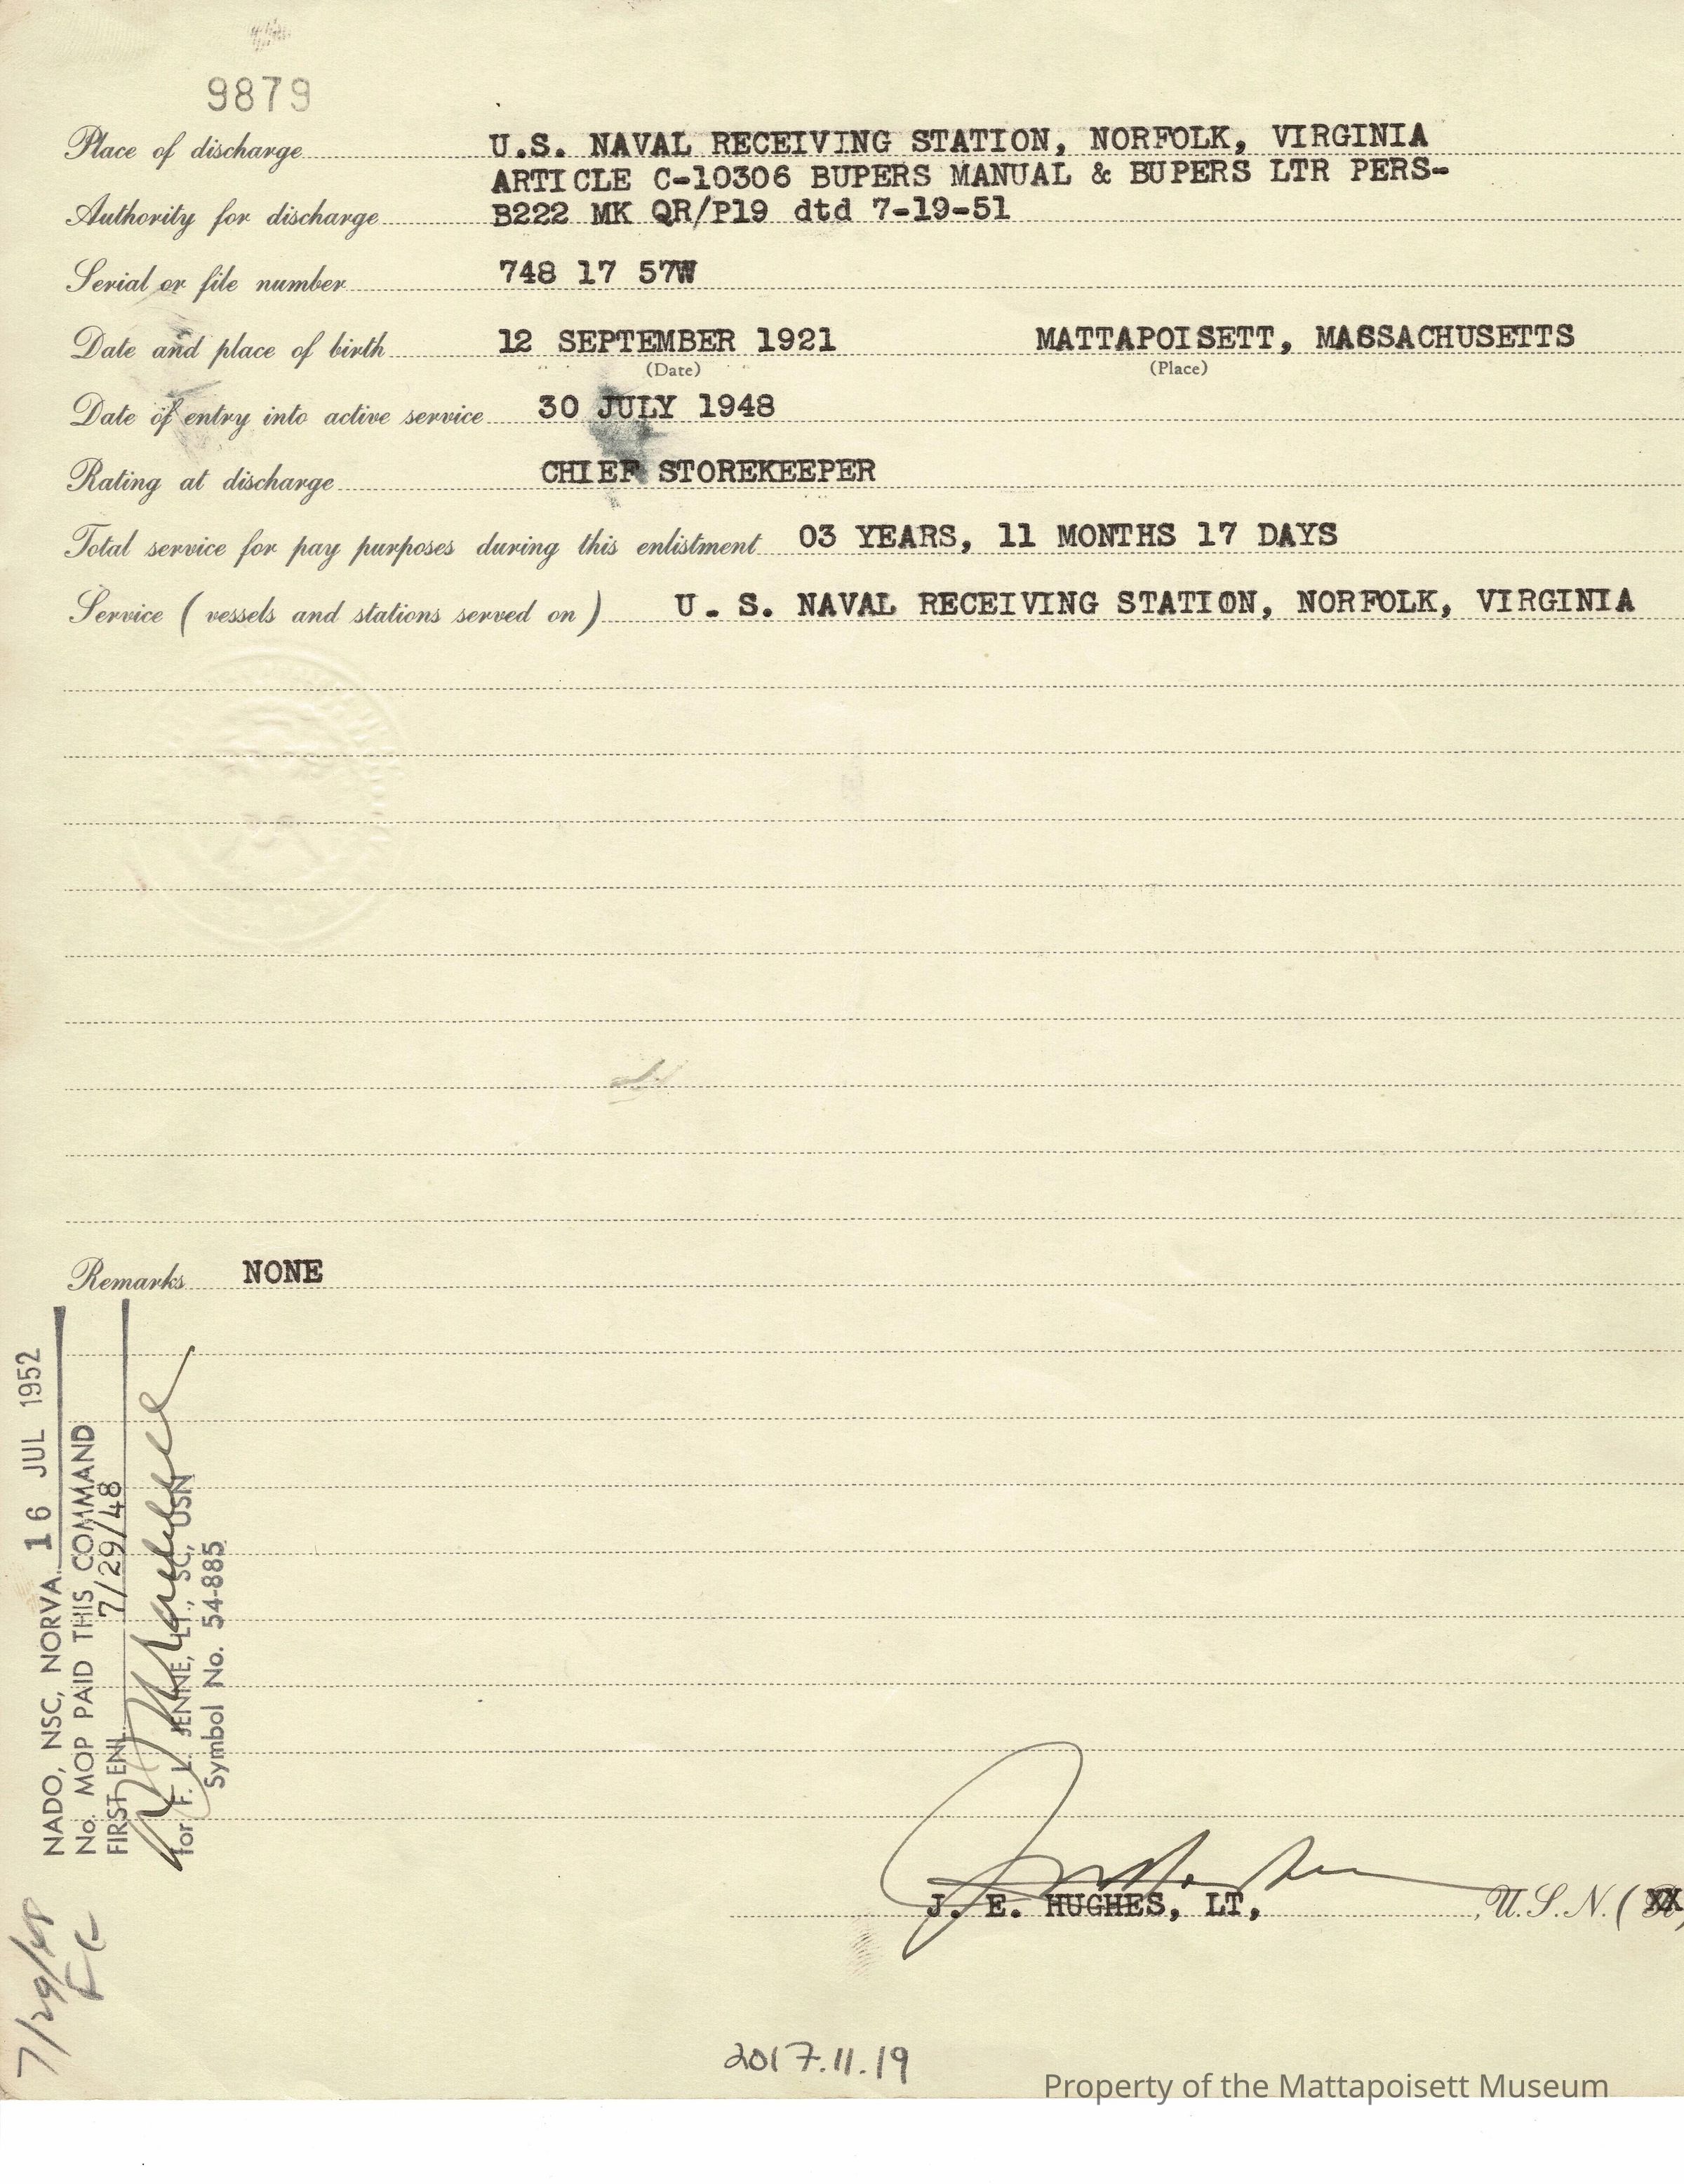 9879
Place of discharge U.S. NAVAL RECEIVING STATION, NORFOLK, VIRGINIA
ARTICLE C-10306 BUPERS MANUAL & BUPERS LTR PERS-
Authority for discharge B222 MK QR/P19 dtd 7-19-51
Serial or file number 748 17 57W
Date and place of birth 12 SEPTEMBER 1921 MATTAPOISETT, MASSACHUSETTS
(Date) (Place)
Date of entry into active service 30 JULY 1948
Rating at discharge CHIEF STOREKEEPER
Total service for pay purposes during this enlistment 03 YEARS, 11 MONTHS 17 DAYS
Service (vessels and stations served on) U. S. NAVAL RECEIVING STATION, NORFOLK, VIRGINIA
Remarks NONE
NADO, NSC, NORVA. 16 JUL 1952
No. MOP PAID THIS COMMAND
FIRST ENL. 7/29/48
for F. L. JENNE, LT., SC, USN
Symbol No. 54-885
J. E. HUGHES, LT, U.S.N. (XX)
7/29/48
2017.11.19
Property of the Mattapoisett Museum